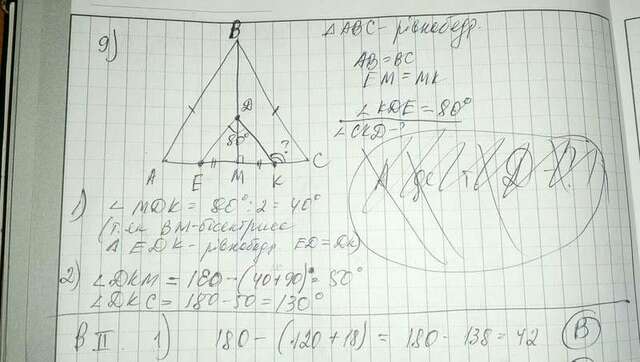 9)
△ABC - рівнобедр.
AB = BC
EM = MK
∠KDE = 80°
∠CKD - ?
B
D
80°
?
A E M K C
1) ∠MDK = 80° : 2 = 40°
(т.як BM - бісектриса
△ EDK - рівнобедр ED = DK)
2) ∠DKM = 180 - (40+90)° = 50°
∠DKC = 180 - 50 = 130°
B II. 1) 180 - (120 + 18) = 180 - 138 = 42 (B)